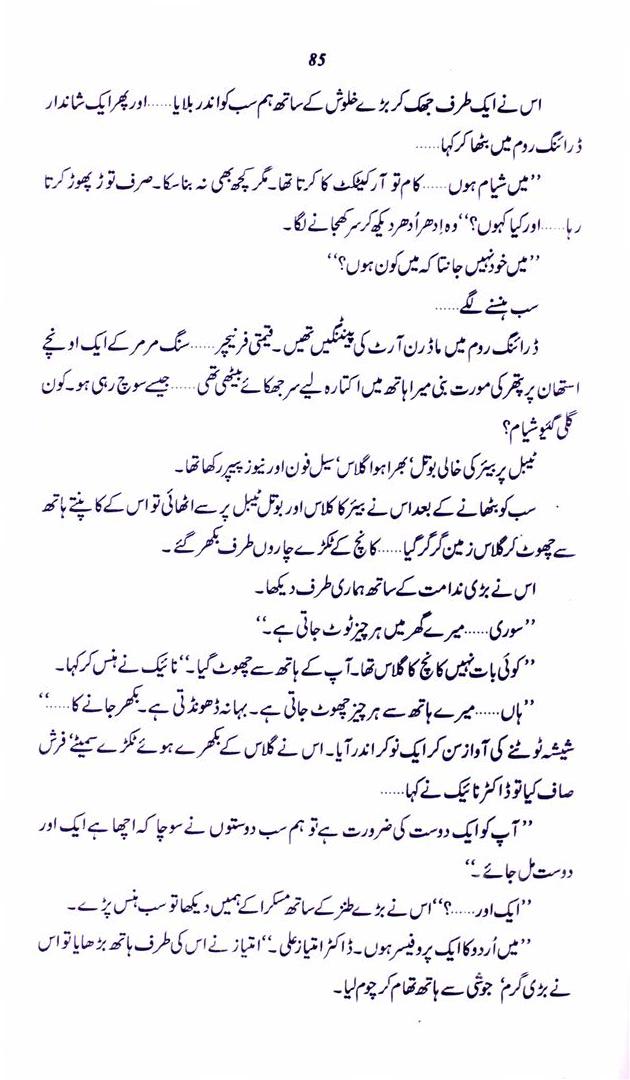 85
اس نے ایک طرف جھک کر بڑے خلوش کے ساتھ ہم سب کو اندر بلایا......اور پھر ایک شاندار
ڈرائنگ روم میں بٹھا کر کہا......
’’میں شیام ہوں......کام تو آرکیٹکٹ کا کرتا تھا۔مگر کچھ بھی نہ بنا سکا۔صرف توڑ پھوڑ کرتا
رہا......اور کیا کہوں؟‘‘وہ اِدھر اُدھر دیکھ کر سر کھجانے لگا۔
’’میں خود نہیں جانتا کہ میں کون ہوں؟‘‘
سب ہنسنے لگے......
ڈرائنگ روم میں ماڈرن آرٹ کی پینٹنگیں تھیں۔قیمتی فرنیچر......سنگ مرمر کے ایک اونچے
استھان پر پتھر کی مورت بنی میرا ہاتھ میں اکتارہ لیے سر جھکائے بیٹھی تھی......جیسے سوچ رہی ہو۔کون
گلی گئیو شیام؟
ٹیبل پر بیئر کی خالی بوتل‘ بھرا ہوا گلاس‘ سیل فون اور نیوز پیپر رکھا تھا۔
سب کو بٹھانے کے بعد اس نے بیئر کا گلاس اور بوتل ٹیبل پر سے اٹھائی تو اس کے کانپتے ہاتھ
سے چھوٹ کر گلاس زمین گر گر گیا......کانچ کے ٹکڑے چاروں طرف بکھر گئے۔
اس نے بڑی ندامت کے ساتھ ہماری طرف دیکھا۔
’’سوری......میرے گھر میں ہر چیز ٹوٹ جاتی ہے۔‘‘
’’کوئی بات نہیں کانچ کا گلاس تھا۔آپ کے ہاتھ سے چھوٹ گیا۔‘‘نائیک نے ہنس کر کہا۔
’’ہاں......میرے ہاتھ سے ہر چیز چھوٹ جاتی ہے۔بہانہ ڈھونڈتی ہے۔بکھر جانے کا......‘‘
شیشہ ٹوٹنے کی آواز سن کر ایک نوکر اندر آیا۔اس نے گلاس کے بکھرے ہوئے ٹکڑے سمیٹے‘ فرش
صاف کیا تو ڈاکٹر نائیک نے کہا......
’’آپ کو ایک دوست کی ضرورت ہے تو ہم سب دوستوں نے سوچا کہ اچھا ہے ایک اور
دوست مل جائے۔‘‘
’’ایک اور......؟‘‘اس نے بڑے طنز کے ساتھ مسکرا کے ہمیں دیکھا تو سب ہنس پڑے۔
’’میں اُردو کا ایک پروفیسر ہوں۔ڈاکٹر امتیاز علی۔‘‘امتیاز نے اس کی طرف ہاتھ بڑھایا تو اس
نے بڑی گرم‘ جوشی سے ہاتھ تھام کر چوم لیا۔